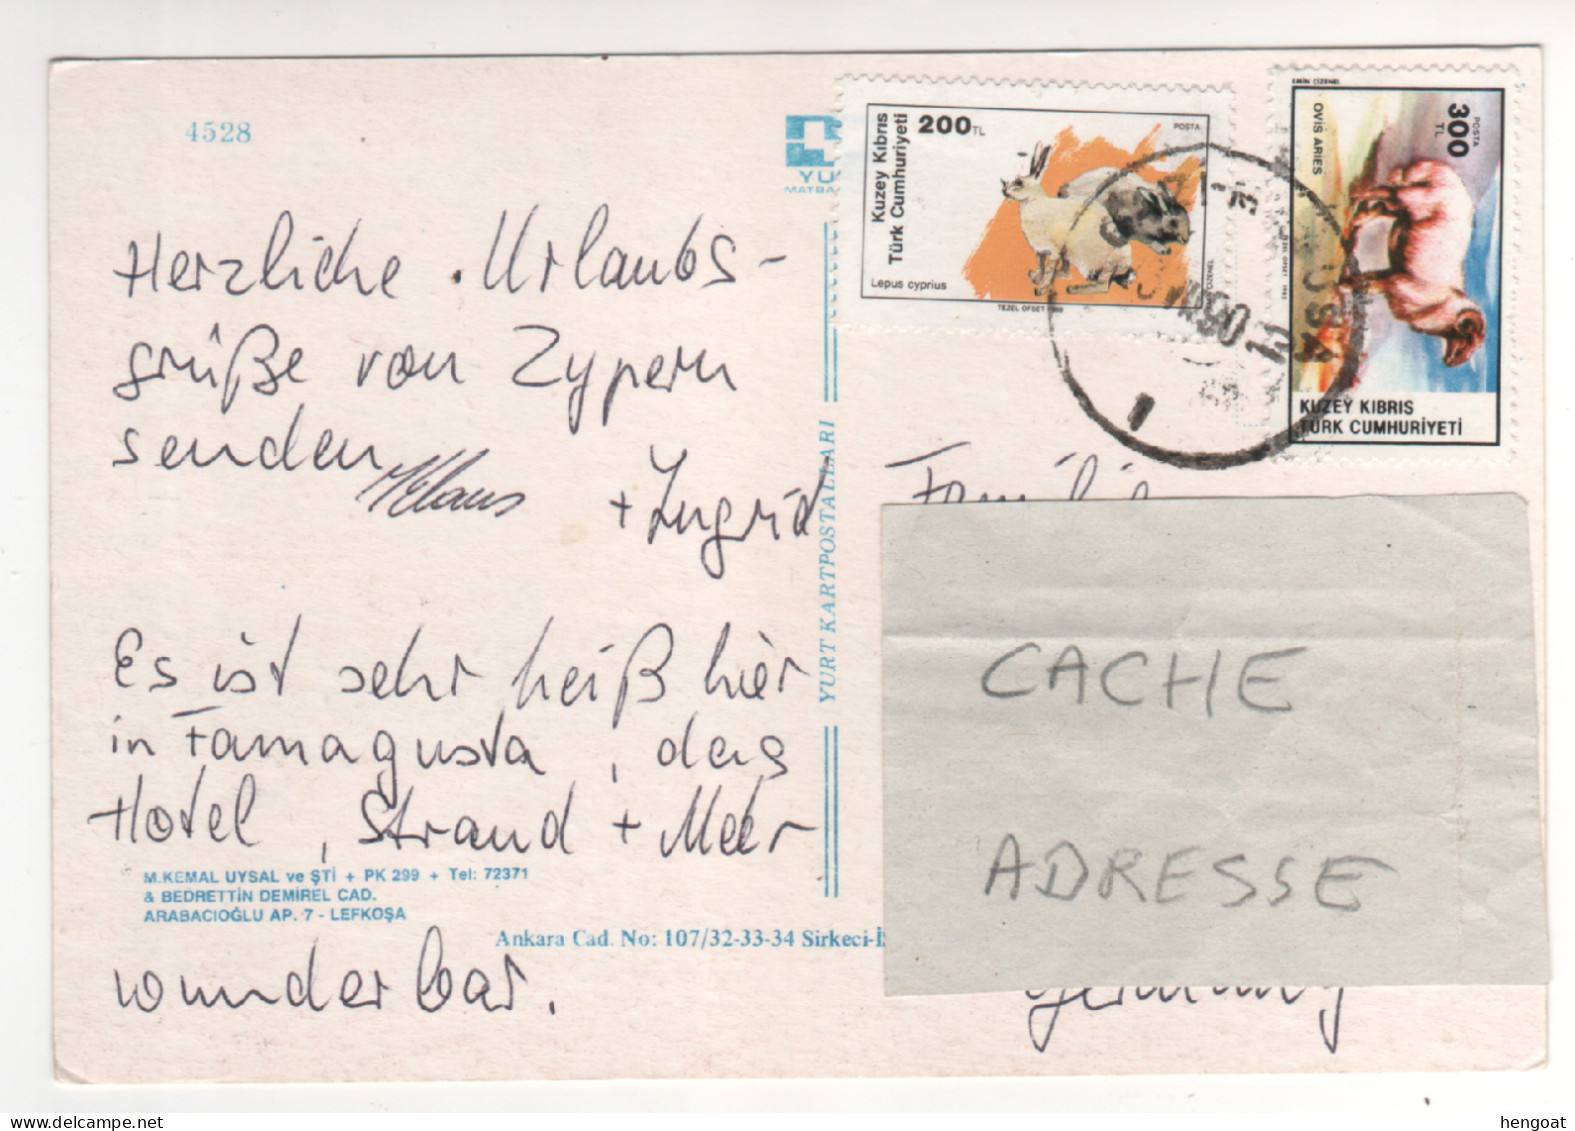 4528
YU
MATBA
Kuzey Kıbrıs
Türk Cumhuriyeti
200TL
POSTA
Lepus cyprius
TEZEL OFSET
EMİN ÇİZENEL
OVİS ARİES
300
TL
POSTA
KUZEY KIBRIS
TÜRK CUMHURİYETİ
Herzliche Urlaubs-
grüße von Zypern
senden Klaus + Ingrid
Es ist sehr heiß hier
in Famagusta, das
Hotel, Strand + Meer
wunderbar.
YURT KARTPOSTALLARI
M.KEMAL UYSAL ve ŞTİ + PK 299 + Tel: 72371
& BEDRETTİN DEMİREL CAD.
ARABACIOĞLU AP. 7 - LEFKOŞA
Ankara Cad. No: 107/32-33-34 Sirkeci-İ
Familie
CACHE
ADRESSE
Germany
hengoat